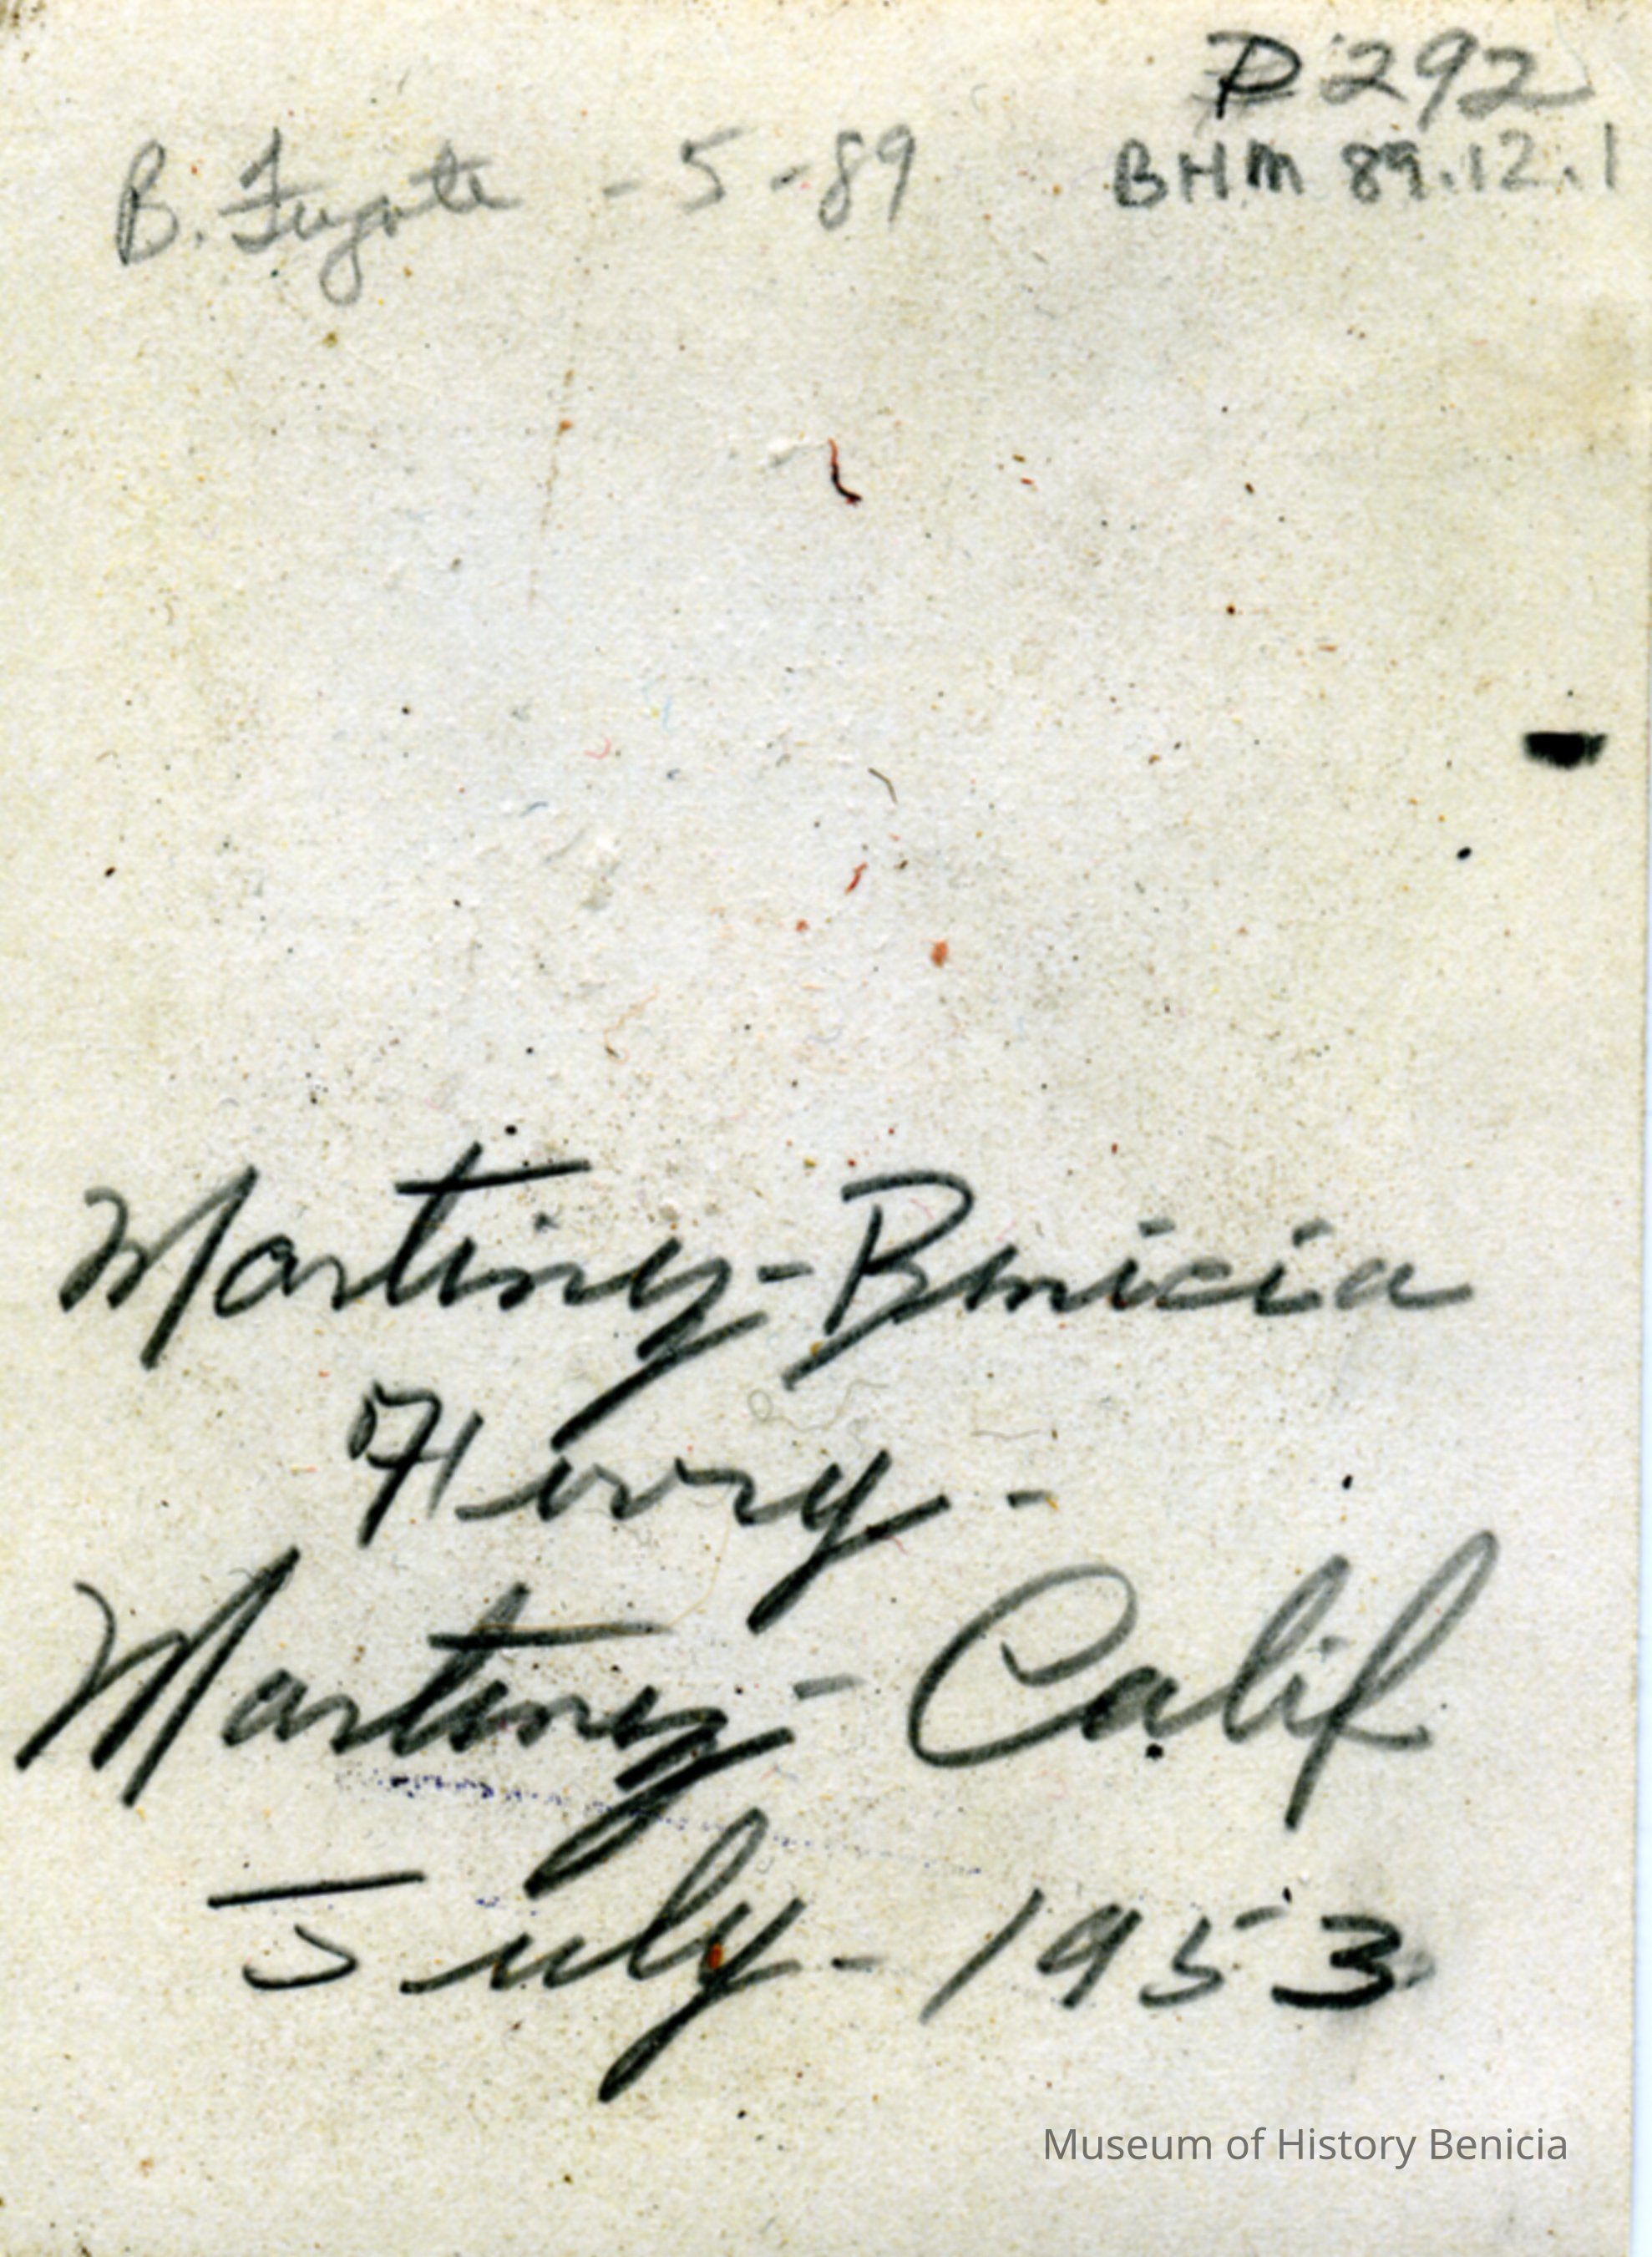 P292
B. Fugate - 5 - 89
BHM 89.12.1
Martinez - Benicia
Ferry -
Martinez - Calif
July - 1953
Museum of History Benicia